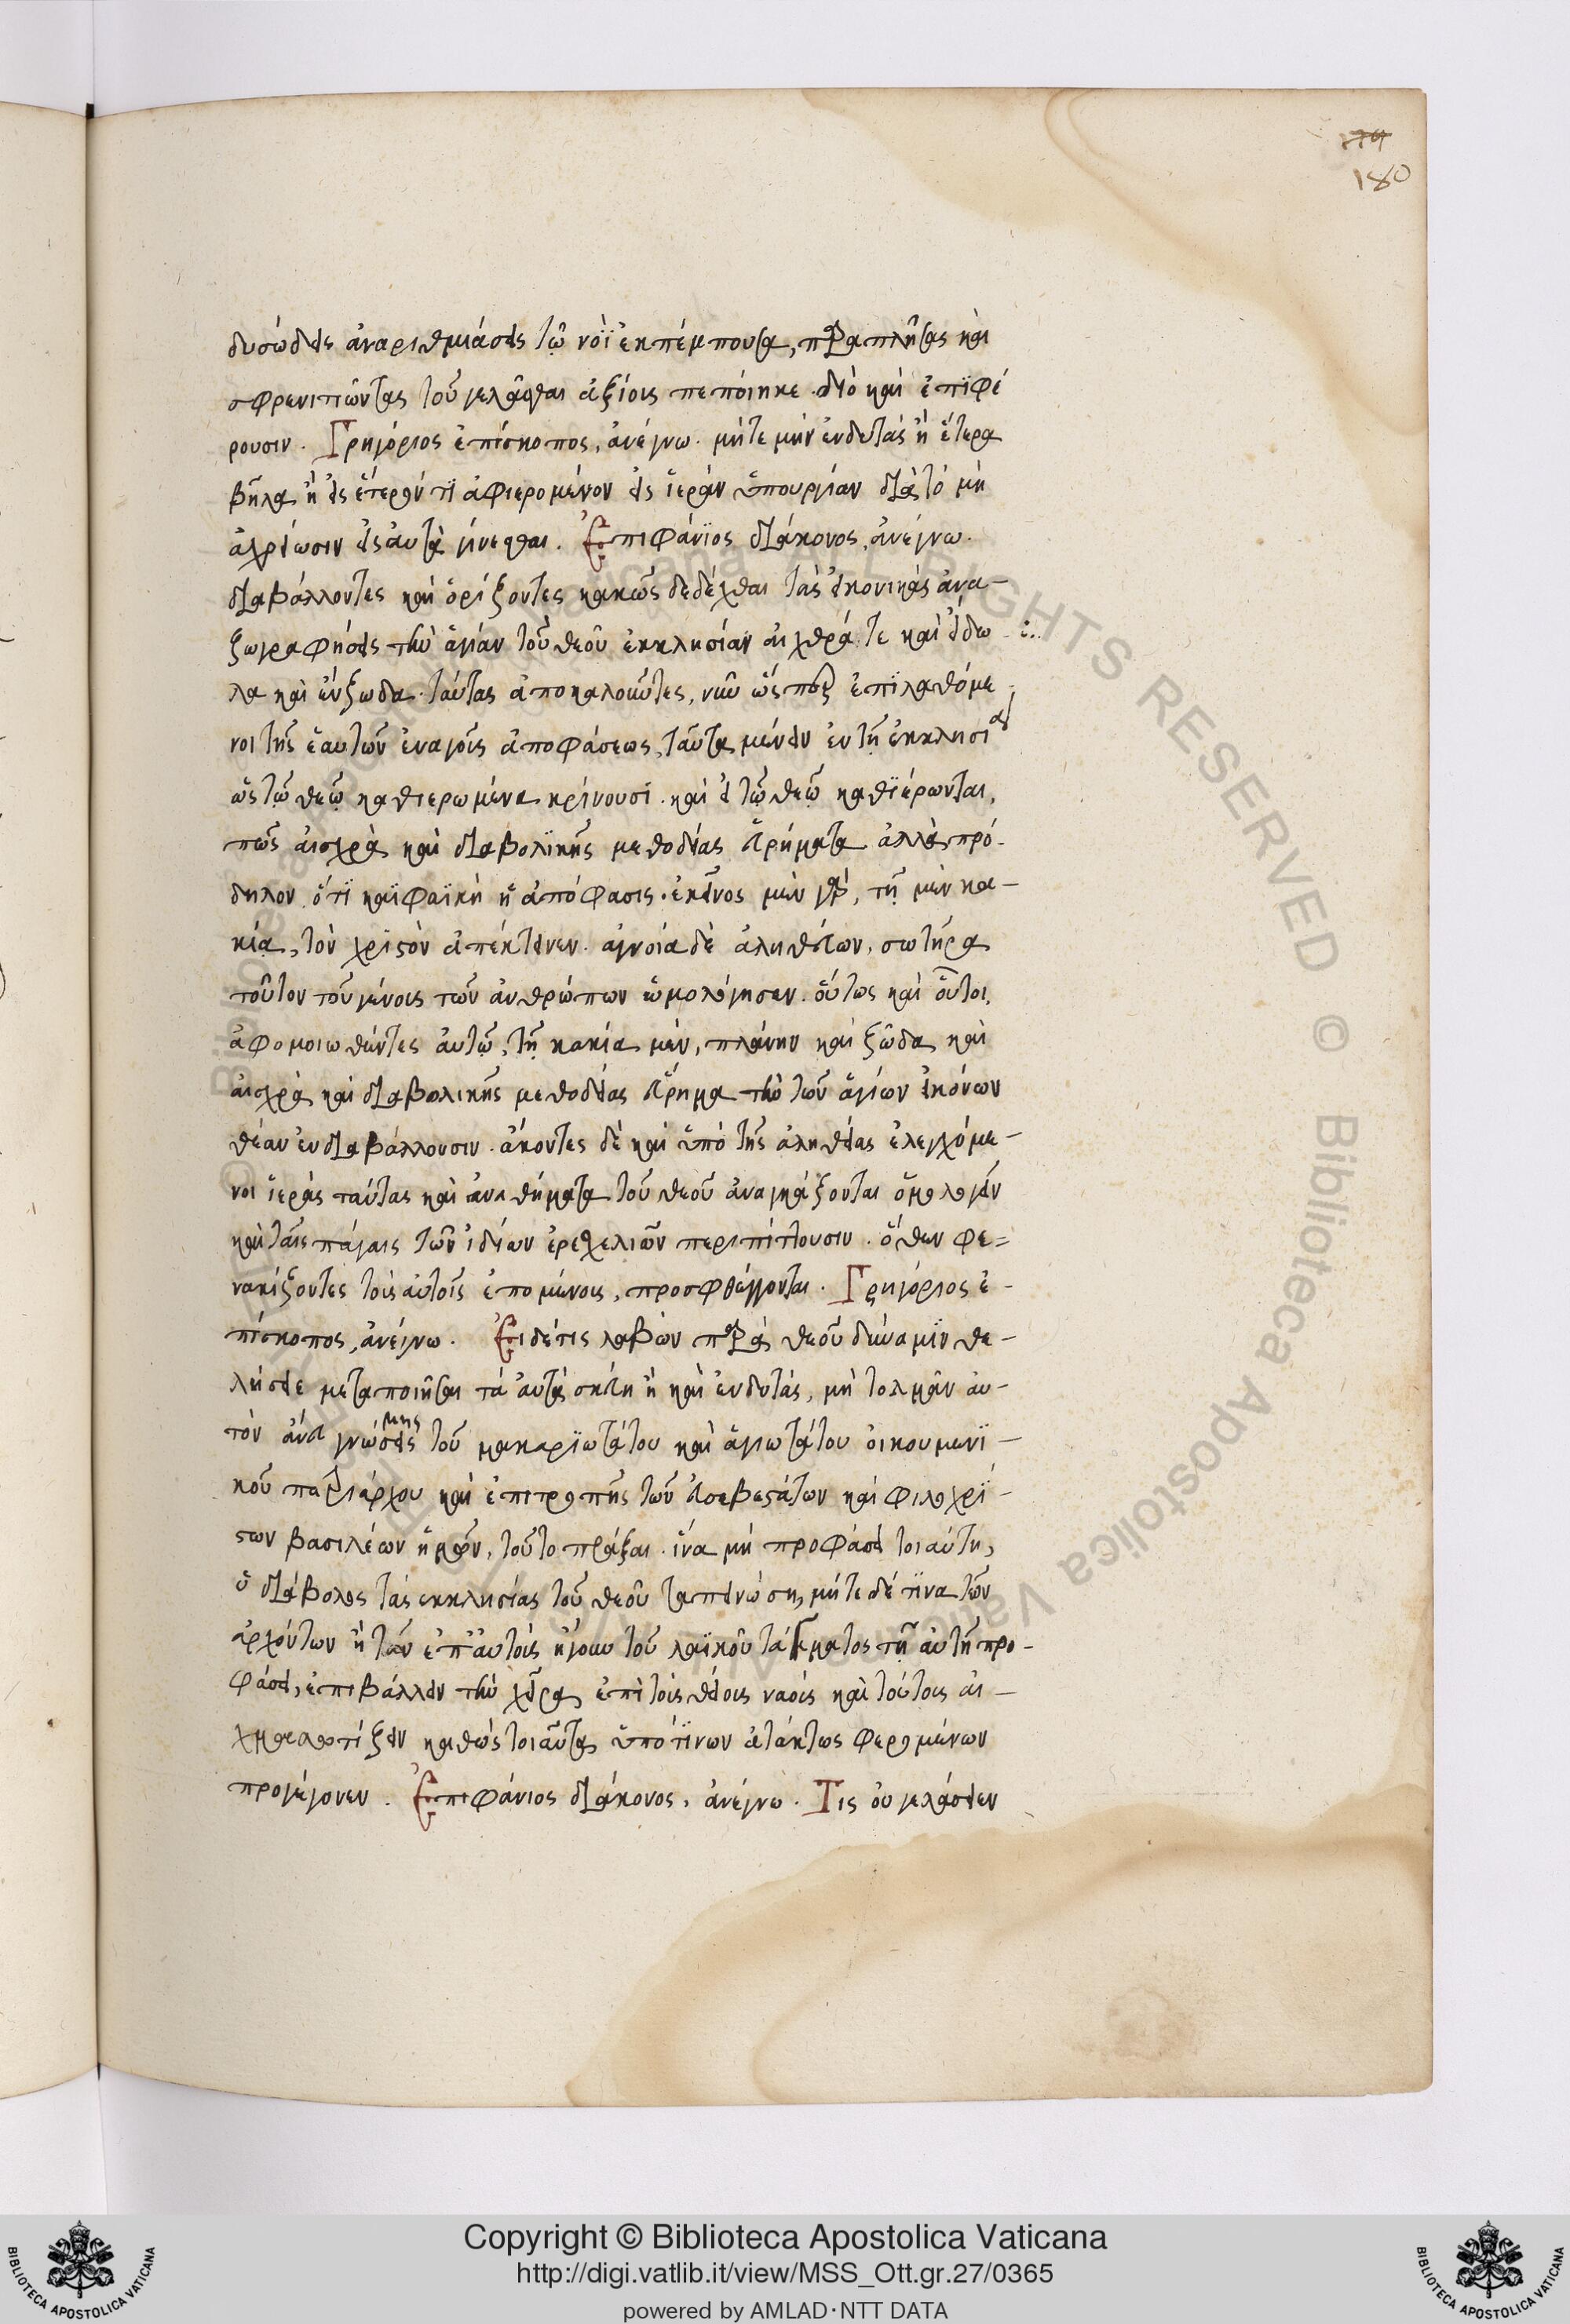 179
180
δυσώδεις ἀναριθμιάσεις τῷ νοῒ ἐκπέμπουσα, παραπλῆγας καὶ
σφρενιτιῶντας τοῦ γελᾶσθαι ἀξίους πεποίηκε. διὸ καὶ ἐπϊφέ
ρουσιν. Γρηγόριος ἐπίσκοπος, ἀνέγνω. μήτε μὴν ἐνδυτὰς ἢ ἕτερα
βῆλα ἢ εἰς ἕτερόν τϊ ἀφιερομένον εἰς ἱερὰν ὑπουργίαν διὰ τὸ μὴ
ἀχρείωσιν εἰς αὐτὰ γίνεσθαι. Ἐπιφάνϊος διάκονος, ἀνέγνω.
διαβάλλοντες καὶ ὁρίζοντες κακῶς δεδέχθαι τὰς εἰκονικὰς ἀνα-
ζωγραφήσεις τὴν ἁγίαν τοῦ θεοῦ ἐκκλησίαν αἰχθρά τε καὶ εἴδω
λα καὶ ἐνζωδα ταύτας ἀποκαλοῦντες, νῦν ὥς περ ἐπϊλαθόμε
νοι τῆς ἑαυτῶν ἐναγοῦς ἀποφάσεως, ταῦτα μένειν ἐν τῇ ἐκκλησίᾳ
ὡς τῷ θεῷ καθιερωμένα κρίνουσϊ. καὶ εἰ τῷ θεῷ καθϊέρωνται,
πῶς αἰσχρὰ καὶ διαβολϊκῆς μεθοδείας εὑρήματα ἀλλὰ πρό-
δηλον ὅτϊ καϊφαϊκὴ ἡ ἀπόφασις. ἐκεῖνος μὲν γὰρ, τῇ μὲν κα-
κίᾳ, τὸν χρϊστὸν ἀπέκτεινεν. ἀγνοία δὲ ἀληθεύων, σωτήρα
τοῦτον τοῦ γένους τῶν ἀνθρώπων ὡμολόγησεν. οὕτως καὶ οὗτοι,
ἀφομοιωθέντες αὐτῷ, τῇ κακία μὲν, πλάνην καὶ ζῶδα καὶ
αἰσχρὰ καὶ διαβολικῆς μεθοδείας εὕρημα τὴν τῶν ἁγίων εἰκόνων
θέαν ἐνδιαβάλλουσιν. ἄκοντες δὲ καὶ ὑπὸ τῆς ἀληθείας ἐλεγχόμε-
νοι ἱερὰς ταύτας καὶ ἀναθήματα τοῦ θεοῦ ἀναγκάζονται ὁμολογεῖν
καὶ ταῖς πάγαις τῶν ἰδίων ἐρεσχελιῶν περιπίπτουσιν. ὅθεν φε=
νακίζοντες τοῖς αὐτοῖς ἑπομένους, προσφθέγγονται. Γρηγόριος ἐ-
πίσκοπος, ἀνέγνω. Ἐι δέ τις λαβὼν παρὰ θεοῦ δύναμϊν θε-
λήσειε μεταποιῆσαι τὰ αὐτὰ σκεύη ἢ καὶ ἐνδυτάς, μὴ τολμᾶν αὐ-
τὸν ἄνευ γνώσεις μης τοῦ μακαρϊωτάτου καὶ ἁγιωτάτου οἰκουμενϊ-
κοῦ πατριάρχου καὶ ἐπιτροπῆς τῶν εὐσεβεστάτων καὶ φιλοχρί-
στων βασιλέων ἡμῶν, τοῦτο πρᾶξαι. ἵνα μὴ προφάσει τοιαύτῃ,
ὁ διάβολος τὰς ἐκκλησίας τοῦ θεοῦ ταπεινώσῃ, μήτε δέ τϊνα τῶν
ἀρχόντων ἢ τῶν ἐπ' αὐτοὺς ἤγουν τοῦ λαϊκοῦ τάγματος τῇ αὐτῇ προ-
φάσει, ἐπιβάλλειν τὴν χεῖρα ἐπὶ τοῖς θείοις ναοῖς καὶ τούτους αἰ-
χμαλωτίζειν καθὼς τοιαῦτα ὑπό τϊνων ἀτάκτως φερομένων
προγέγονεν. Ἐπιφάνιος διάκονος, ἀνέγνω. Τίς οὐ γελάσειεν
Copyright © Biblioteca Apostolica Vaticana
http://digi.vatlib.it/view/MSS_Ott.gr.27/0365
powered by AMLAD·NTT DATA
BIBLIOTECA APOSTOLICA VATICANA
BIBLIOTECA APOSTOLICA VATICANA